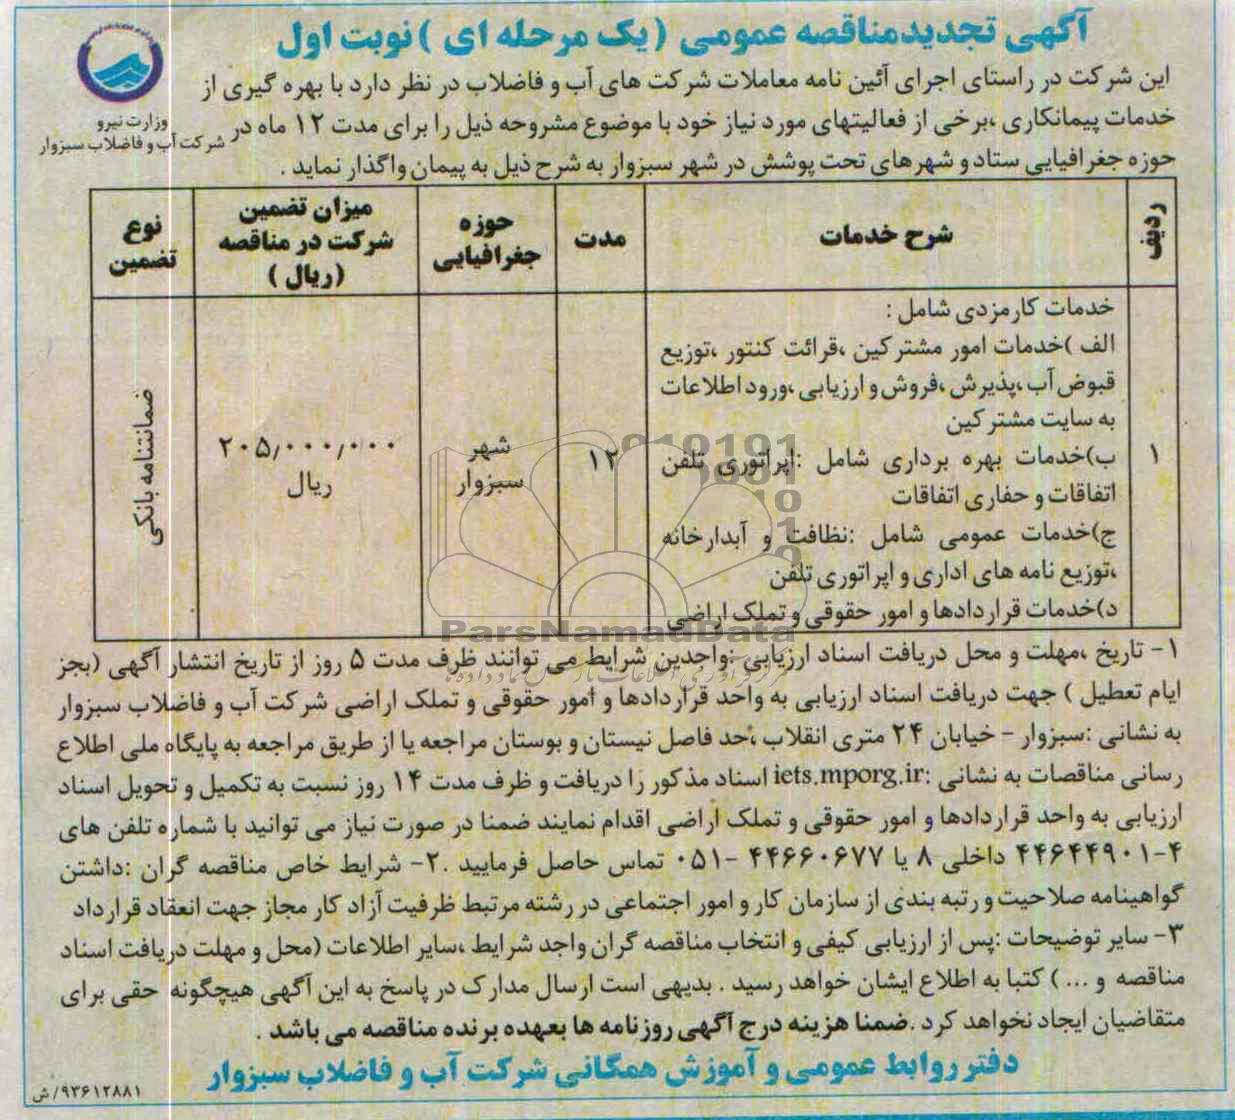 آگهی تجدیدمناقصه عمومی (یک مرحله ای ) نوبت اول
این شرکت در راستای اجرای آئین نامه معاملات شرکت های آب و فاضلاب در نظر دارد با بهره گیری از
خدمات پیمانکاری ،برخی از فعالیتهای مورد نیاز خود با موضوع مشروحه ذیل را برای مدت ۱۲ ماه در
حوزه جغرافیایی ستاد و شهرهای تحت پوشش در شهر سبزوار به شرح ذیل به پیمان واگذار نماید .
وزارت نیرو
شرکت آب و فاضلاب سبزوار
ردیف
شرح خدمات
مدت
حوزه
جغرافیایی
میزان تضمین
شرکت در مناقصه
(ریال )
نوع
تضمین
۱
خدمات کارمزدی شامل :
الف )خدمات امور مشترکین ،قرائت کنتور ،توزیع
قبوض آب ،پذیرش ،فروش و ارزیابی ،ورود اطلاعات
به سایت مشترکین
ب)خدمات بهره برداری شامل :اپراتوری تلفن
اتفاقات و حفاری اتفاقات
ج)خدمات عمومی شامل :نظافت و آبدارخانه
،توزیع نامه های اداری و اپراتوری تلفن
د)خدمات قراردادها و امور حقوقی و تملک اراضی
۱۲
شهر
سبزوار
۲۰۵٫۰۰۰٫۰۰۰
ریال
ضمانتنامه بانکی
ParsNamadData
۱- تاریخ ،مهلت و محل دریافت اسناد ارزیابی :واجدین شرایط می توانند ظرف مدت ۵ روز از تاریخ انتشار آگهی (بجز
ایام تعطیل ) جهت دریافت اسناد ارزیابی به واحد قراردادها و امور حقوقی و تملک اراضی شرکت آب و فاضلاب سبزوار
به نشانی :سبزوار - خیابان ۲۴ متری انقلاب ،حد فاصل نیستان و بوستان مراجعه یا از طریق مراجعه به پایگاه ملی اطلاع
رسانی مناقصات به نشانی :iets.mporg.ir اسناد مذکور را دریافت و ظرف مدت ۱۴ روز نسبت به تکمیل و تحویل اسناد
ارزیابی به واحد قراردادها و امور حقوقی و تملک اراضی اقدام نمایند ضمنا در صورت نیاز می توانید با شماره تلفن های
۴-۴۴۶۴۴۹۰۱ داخلی ۸ یا ۴۴۶۶۰۶۷۷ -۰۵۱ تماس حاصل فرمایید .۲- شرایط خاص مناقصه گران :داشتن
گواهینامه صلاحیت و رتبه بندی از سازمان کار و امور اجتماعی در رشته مرتبط ظرفیت آزاد کار مجاز جهت انعقاد قرارداد
۳- سایر توضیحات :پس از ارزیابی کیفی و انتخاب مناقصه گران واجد شرایط ،سایر اطلاعات (محل و مهلت دریافت اسناد
مناقصه و ... ) کتبا به اطلاع ایشان خواهد رسید . بدیهی است ارسال مدارک در پاسخ به این آگهی هیچگونه حقی برای
متقاضیان ایجاد نخواهد کرد .ضمنا هزینه درج آگهی روزنامه ها بعهده برنده مناقصه می باشد .
دفتر روابط عمومی و آموزش همگانی شرکت آب و فاضلاب سبزوار
۹۳۶۱۲۸۸۱/ش